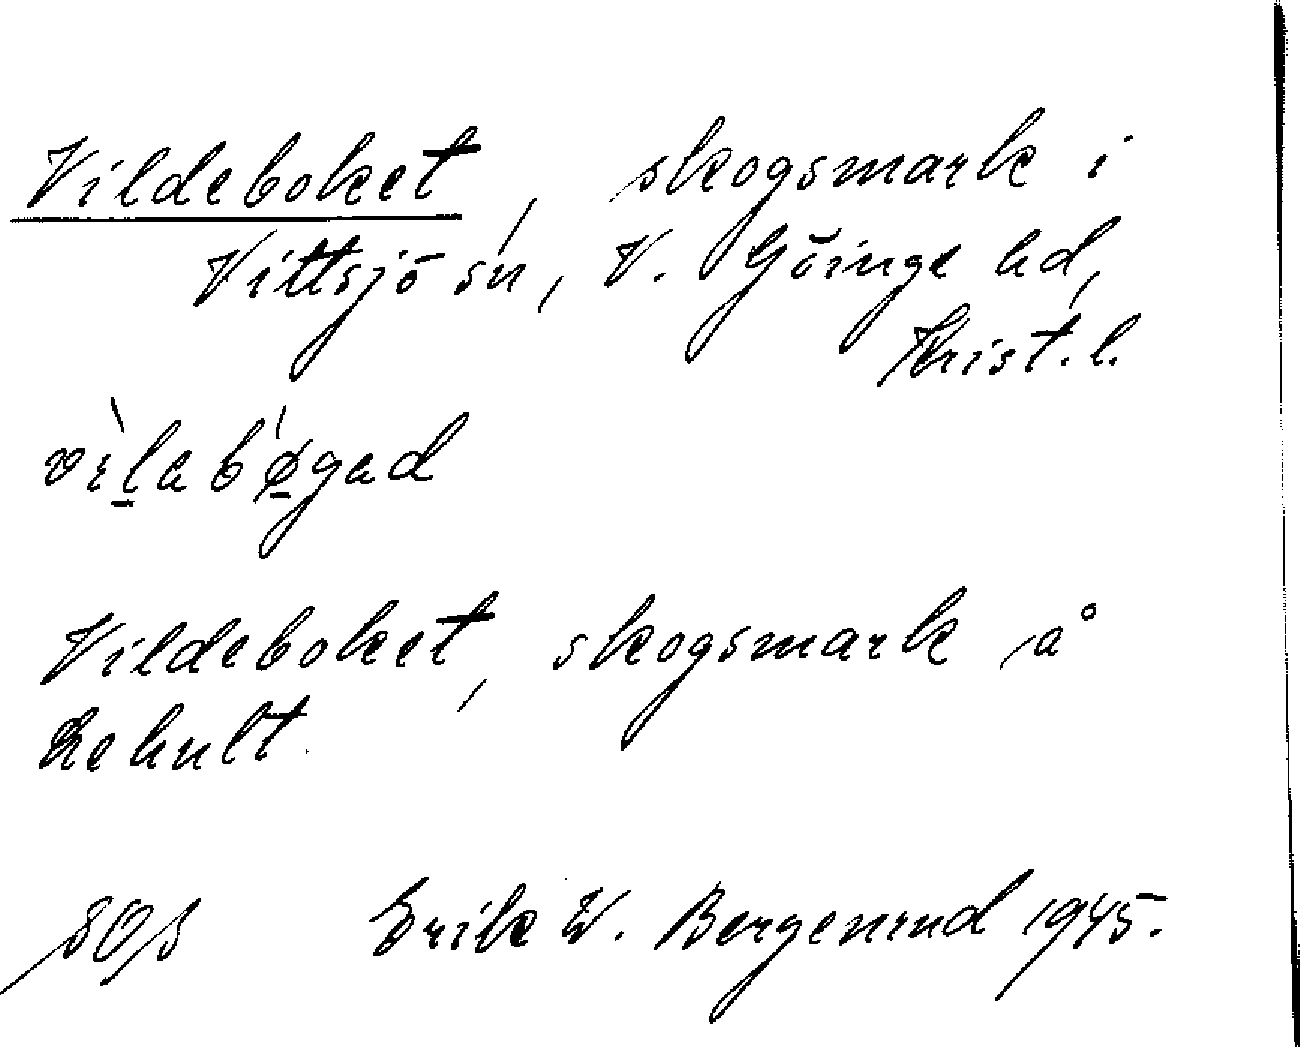 Vildeboket, skogsmark i
Vittsjö sn, V. Göinge hd,
Krist. l.
vìlabǿgad
Vildeboket, skogsmark å
Lehult.
Erik W. Bergenrud 1945.